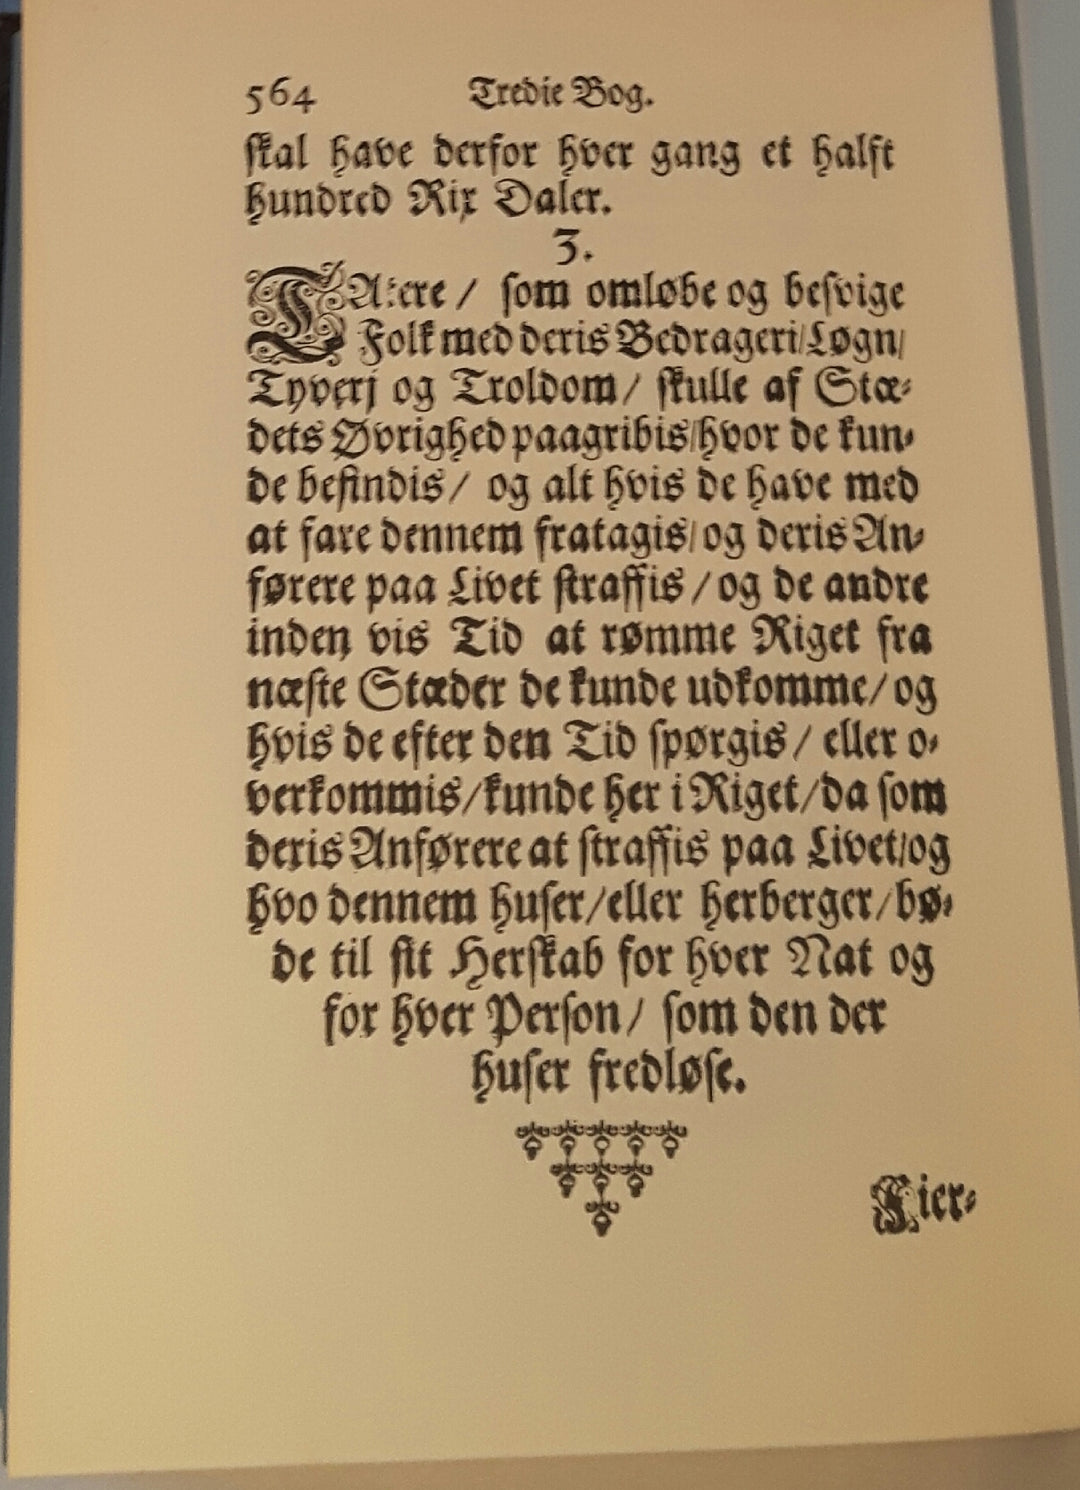 564 Tredie Bog.
skal have derfor hver gang et halft
hundred Rix Daler.
3.
TAtere / som omløbe og besvige
Folk med deris Bedrageri/Løgn/
Tyverj og Troldom / skulle af Stæ-
dets Øvrighed paagribis/hvor de kun-
de befindis / og alt hvis de have med
at fare dennem fratagis/og deris An-
førere paa Livet straffis / og de andre
inden vis Tid at rømme Riget fra
næste Stæder de kunde udkomme/og
hvis de efter den Tid spørgis / eller o-
verkommis/kunde her i Riget/da som
deris Anførere at straffis paa Livet/og
hvo dennem huser/eller herberger/bø-
de til sit Herskab for hver Nat og
for hver Person / som den der
huser fredløse.
Fier-